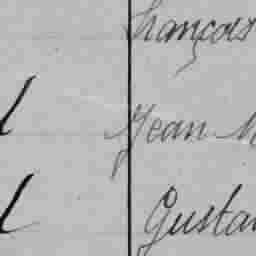 François
Jean M
Gusta